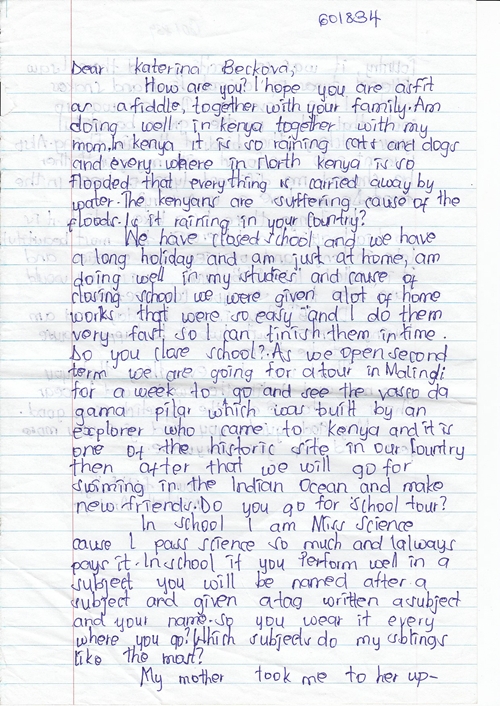 601834
Dear Katerina Beckova,
How are you? I hope you are asfit
as a fiddle, together with your family. Am
doing well in kenya together with my
mom. In kenya it is so raining cats and dogs
and every where in North kenya is so
flooded that everything is carried away by
water. The kenyans are suffering cause of the
floods. Is it raining in your Country?
We have closed school and we have
a long holiday and am just at home, am
doing well in my studies and cause of
closing school we were given alot of home
works that were so easy and I do them
very fast so I can finish them in time.
Do you close school? As we open second
term we are going for a tour in Malindi
for a week to go and see the vasco da
gama pilar which was built by an
explorer who came to kenya and it is
one of the historic site in our Country
then after that we will go for
swiming in the Indian Ocean and make
new friends. Do you go for school tour?
In school I am Miss science
cause I pass science so much and I always
pays it. In school if you Perform well in a
subject you will be named after a
subject and given a tag written a subject
and your name. so you wear it every
where you go? Which subjects do my siblings
like the most?
My mother took me to her up-